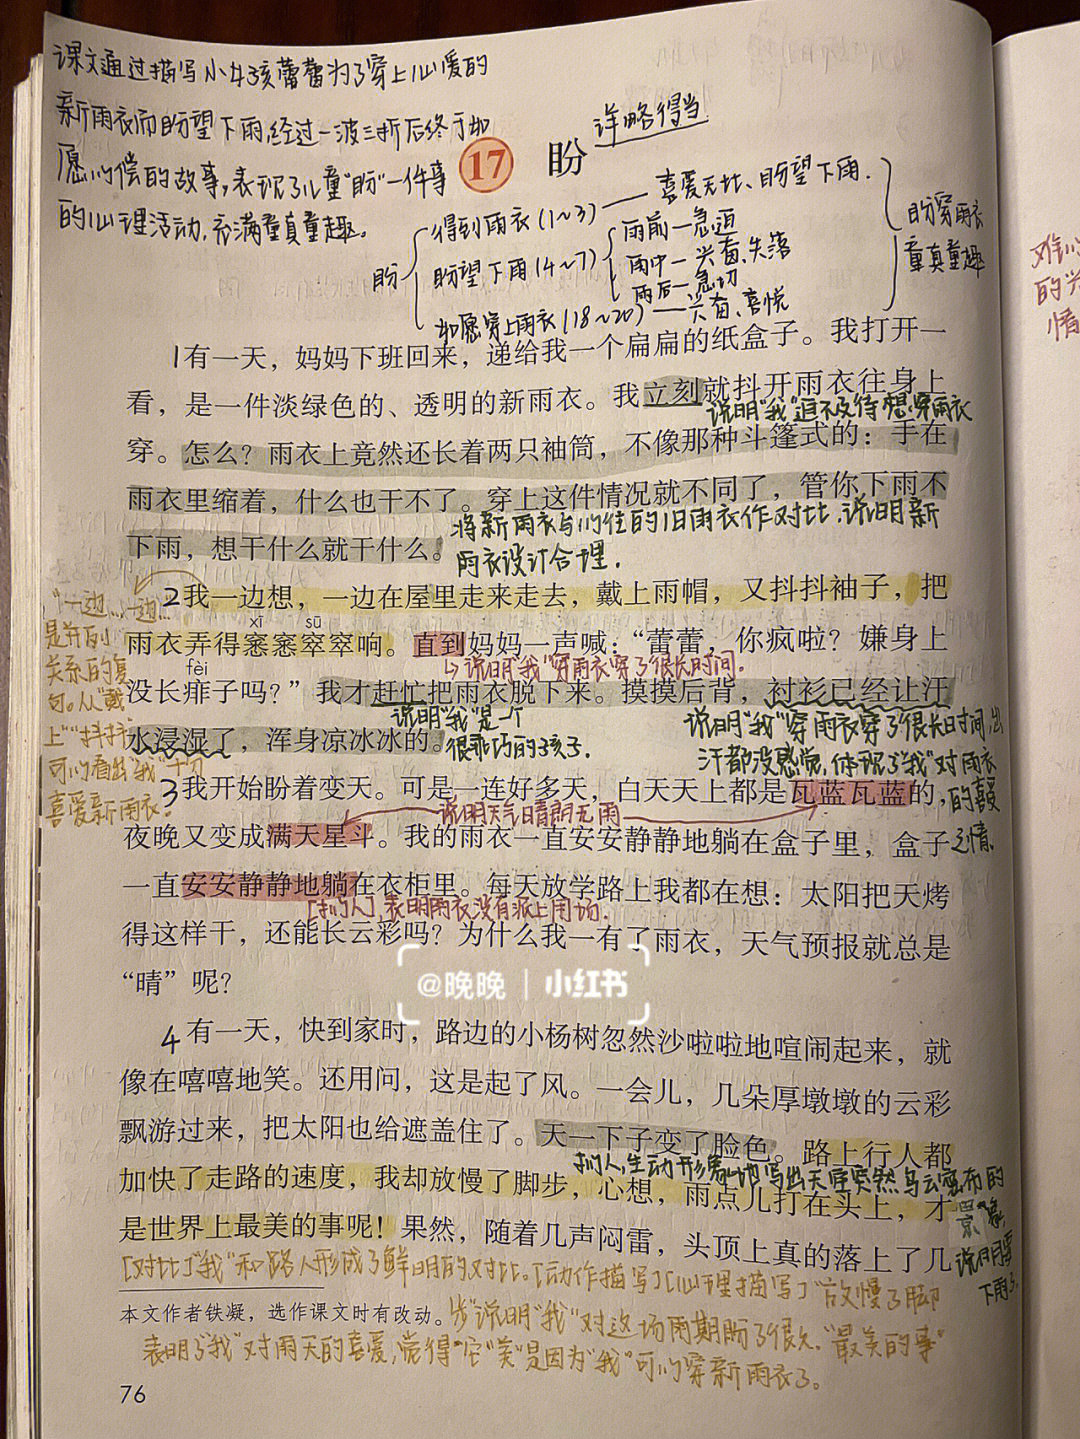 课文通过描写小女孩蕾蕾为了穿上心爱的
新雨衣而盼望下雨,经过一波三折后终于如
愿以偿的故事,表现了儿童"盼"一件事
的心理活动,充满童真童趣。
17 盼
详略得当
盼
得到雨衣(1~3)——喜爱无比、盼望下雨.
盼望下雨(4~7)
雨前—急迫
雨中—兴奋、失落
雨后—急切
如愿穿上雨衣(18~20)—兴奋、喜悦
盼穿雨衣
童真童趣
1有一天，妈妈下班回来，递给我一个扁扁的纸盒子。我打开一
看，是一件淡绿色的、透明的新雨衣。我立刻就抖开雨衣往身上
说明"我"迫不及待想穿雨衣
穿。怎么？雨衣上竟然还长着两只袖筒，不像那种斗篷式的：手在
雨衣里缩着，什么也干不了。穿上这件情况就不同了，管你下雨不
将新雨衣与以往的旧雨衣作对比,说明新
下雨，想干什么就干什么。
雨衣设计合理.
2我一边想，一边在屋里走来走去，戴上雨帽，又抖抖袖子，把
xī sū
雨衣弄得窸窸窣窣响。直到妈妈一声喊：“蕾蕾，你疯啦？嫌身上
说明"我"穿雨衣穿了很长时间.
fèi
没长痱子吗？”我才赶忙把雨衣脱下来。摸摸后背，衬衫已经让汗
说明"我"是一个
很乖巧的孩子.
水浸湿了，浑身凉冰冰的。
说明"我"穿雨衣穿了很长时间,出
汗都没感觉,体现了"我"对雨衣
的喜爱
之情.
"一边…一边…"
是并列
关系的复
句。从"戴
上""抖抖"
可以看出"我"十分
喜爱新雨衣.
3我开始盼着变天。可是一连好多天，白天天上都是瓦蓝瓦蓝的，
说明天气晴朗无雨
夜晚又变成满天星斗。我的雨衣一直安安静静地躺在盒子里，盒子
一直安安静静地躺在衣柜里。每天放学路上我都在想：太阳把天烤
[拟人],表明雨衣没有派上用场.
得这样干，还能长云彩吗？为什么我一有了雨衣，天气预报就总是
“晴”呢？
@晚晚 | 小红书
4有一天，快到家时，路边的小杨树忽然沙啦啦地喧闹起来，就
像在嘻嘻地笑。还用问，这是起了风。一会儿，几朵厚墩墩的云彩
飘游过来，把太阳也给遮盖住了。天一下子变了脸色。路上行人都
拟人,生动形象地写出天空突然乌云密布的
景象,
说明要
下雨了.
加快了走路的速度，我却放慢了脚步，心想，雨点儿打在头上，才
是世界上最美的事呢！果然，随着几声闷雷，头顶上真的落上了几
[对比]"我"和路人形成了鲜明的对比。[动作描写][心理描写]"放慢了脚
本文作者铁凝，选作课文时有改动。
步"说明"我"对这场雨期盼了很久."最美的事"
表明了"我"对雨天的喜爱,觉得"它"美"是因为"我"可以穿新雨衣了。
76
难以
的兴
情